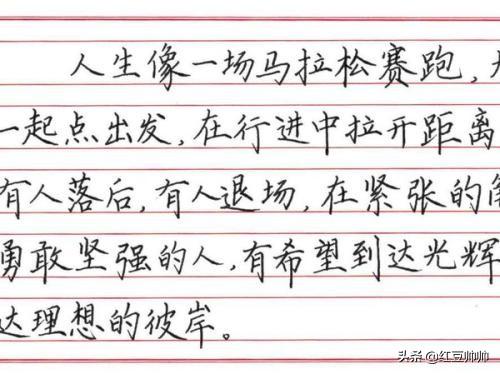 人生像一场马拉松赛跑，
一起点出发，在行进中拉开距离
有人落后，有人退场，在紧张的
勇敢坚强的人，有希望到达光辉
达理想的彼岸。
头条@红豆帅帅